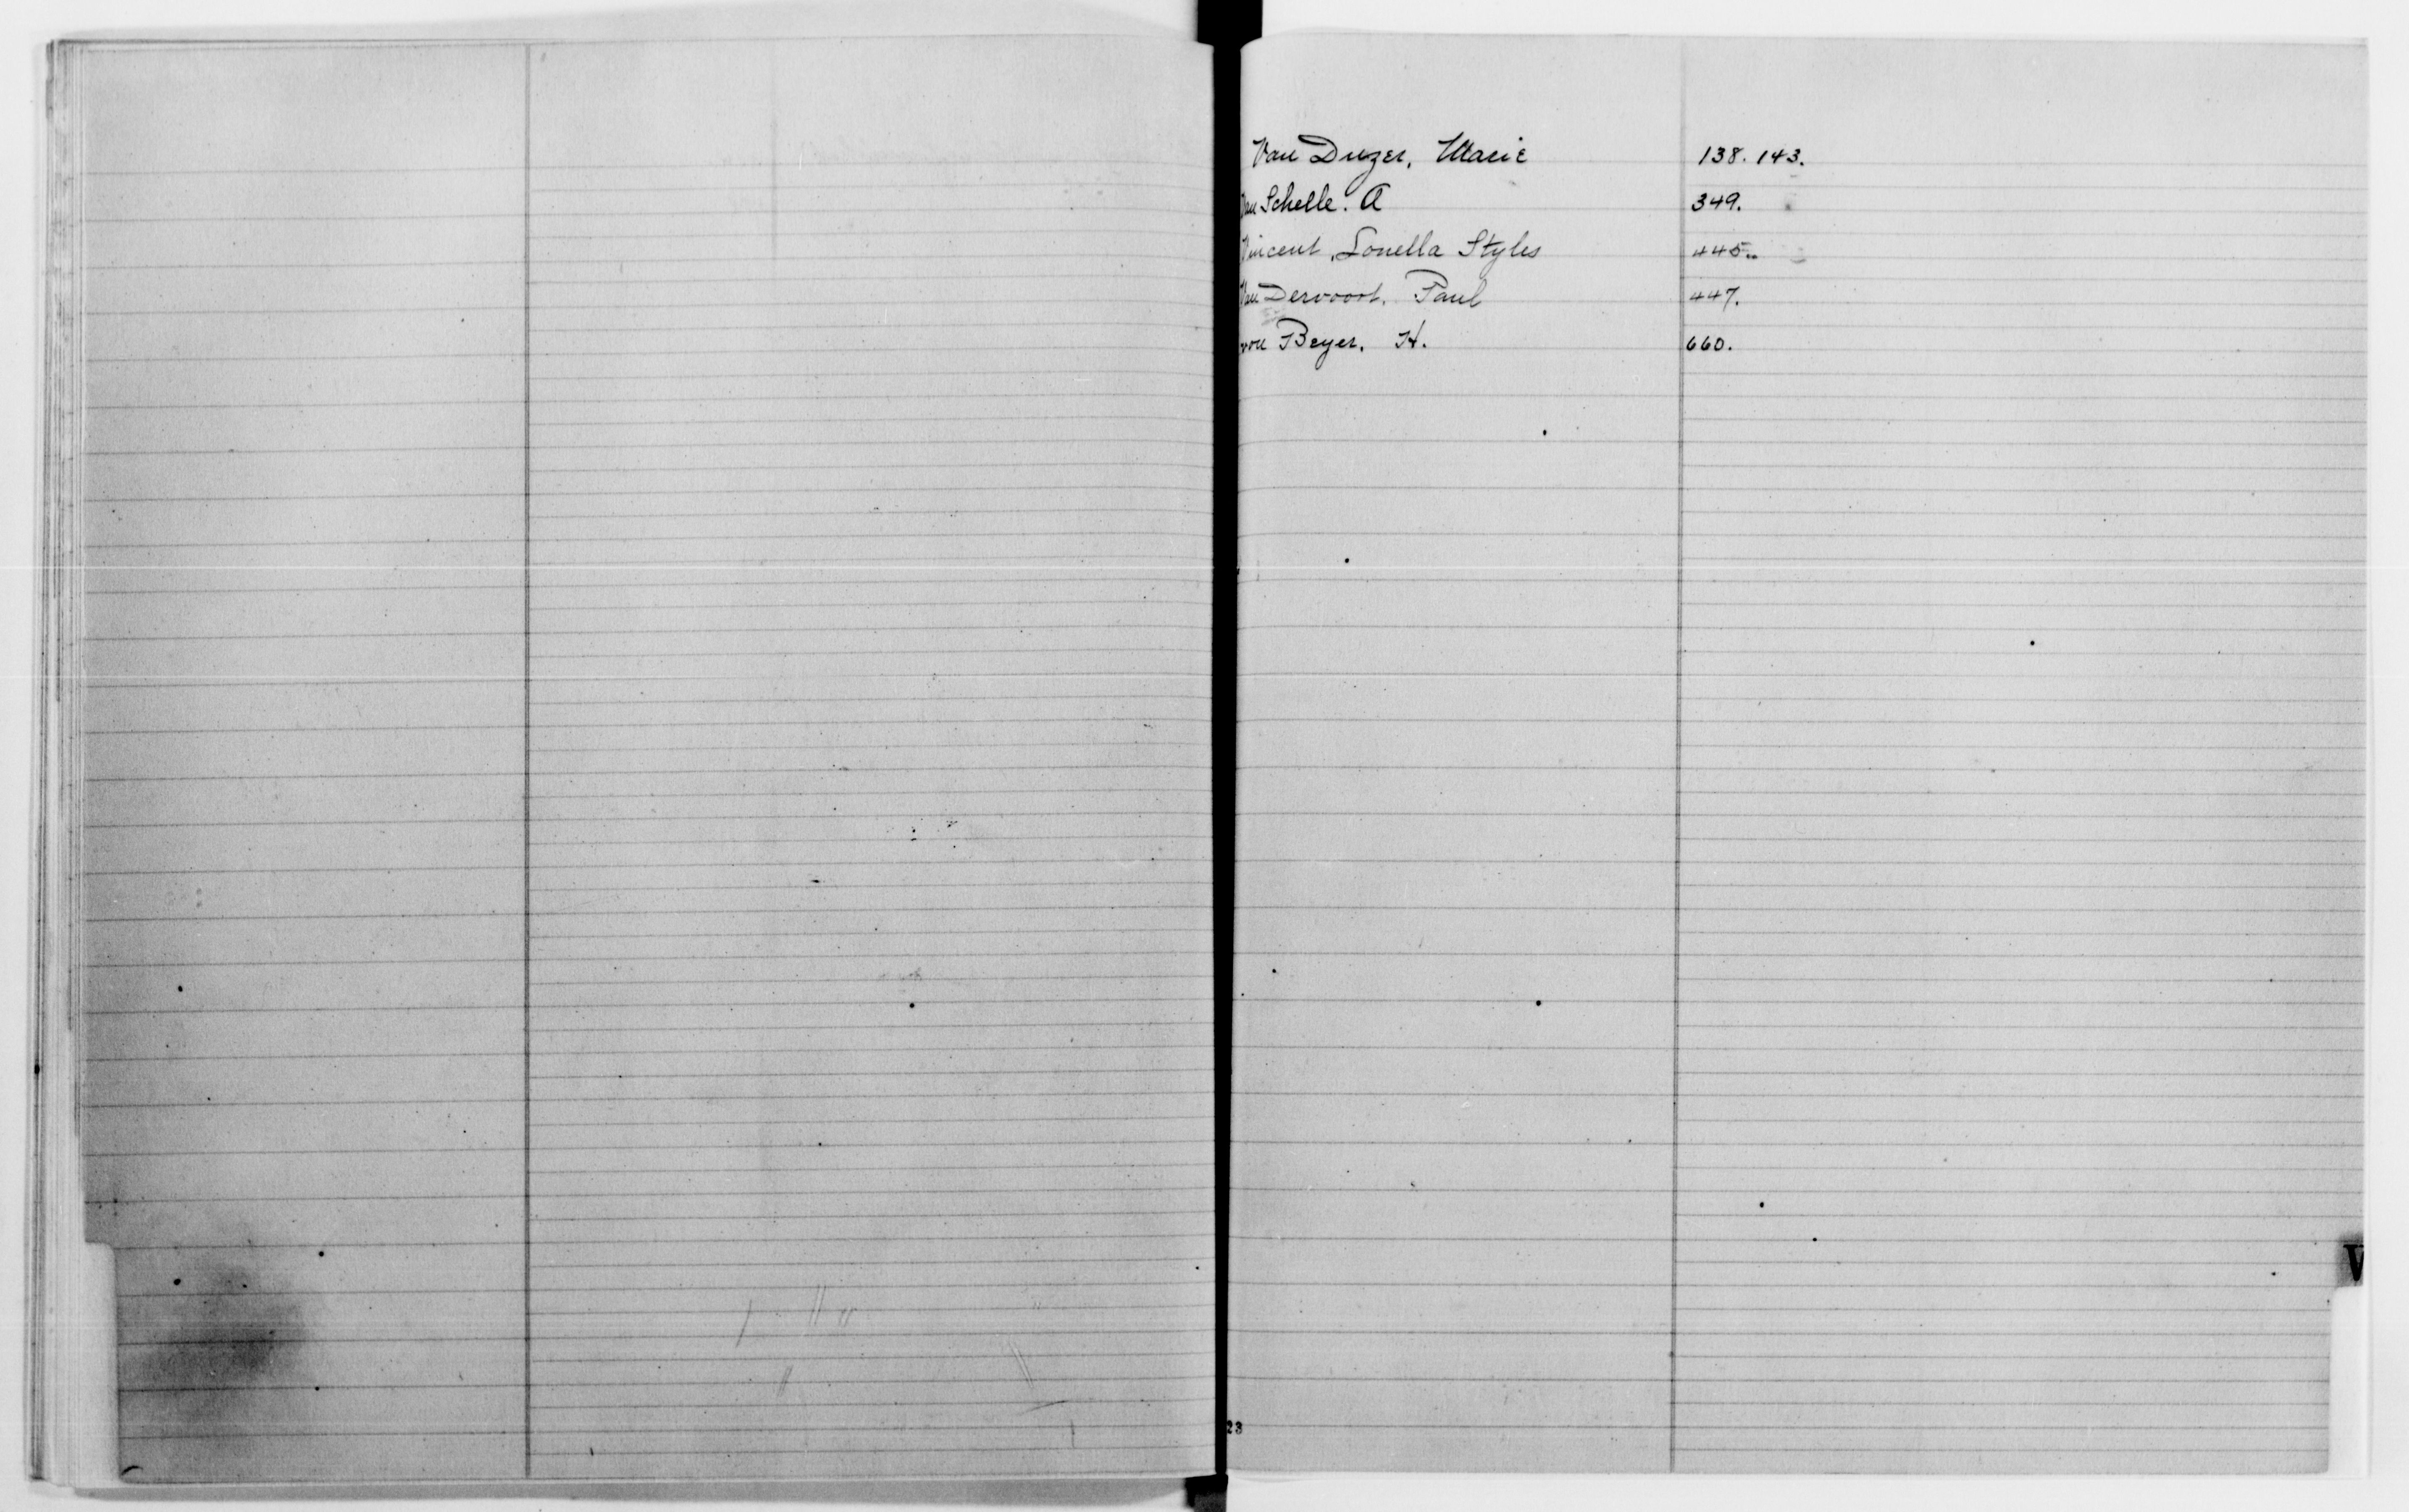 Van Duzer, Marie 138. 143.
Van Schelle. A 349.
Vincent, Lonella Styles 445..
Van Dervoort. Paul 447.
von Beyer. H. 660.
V
23